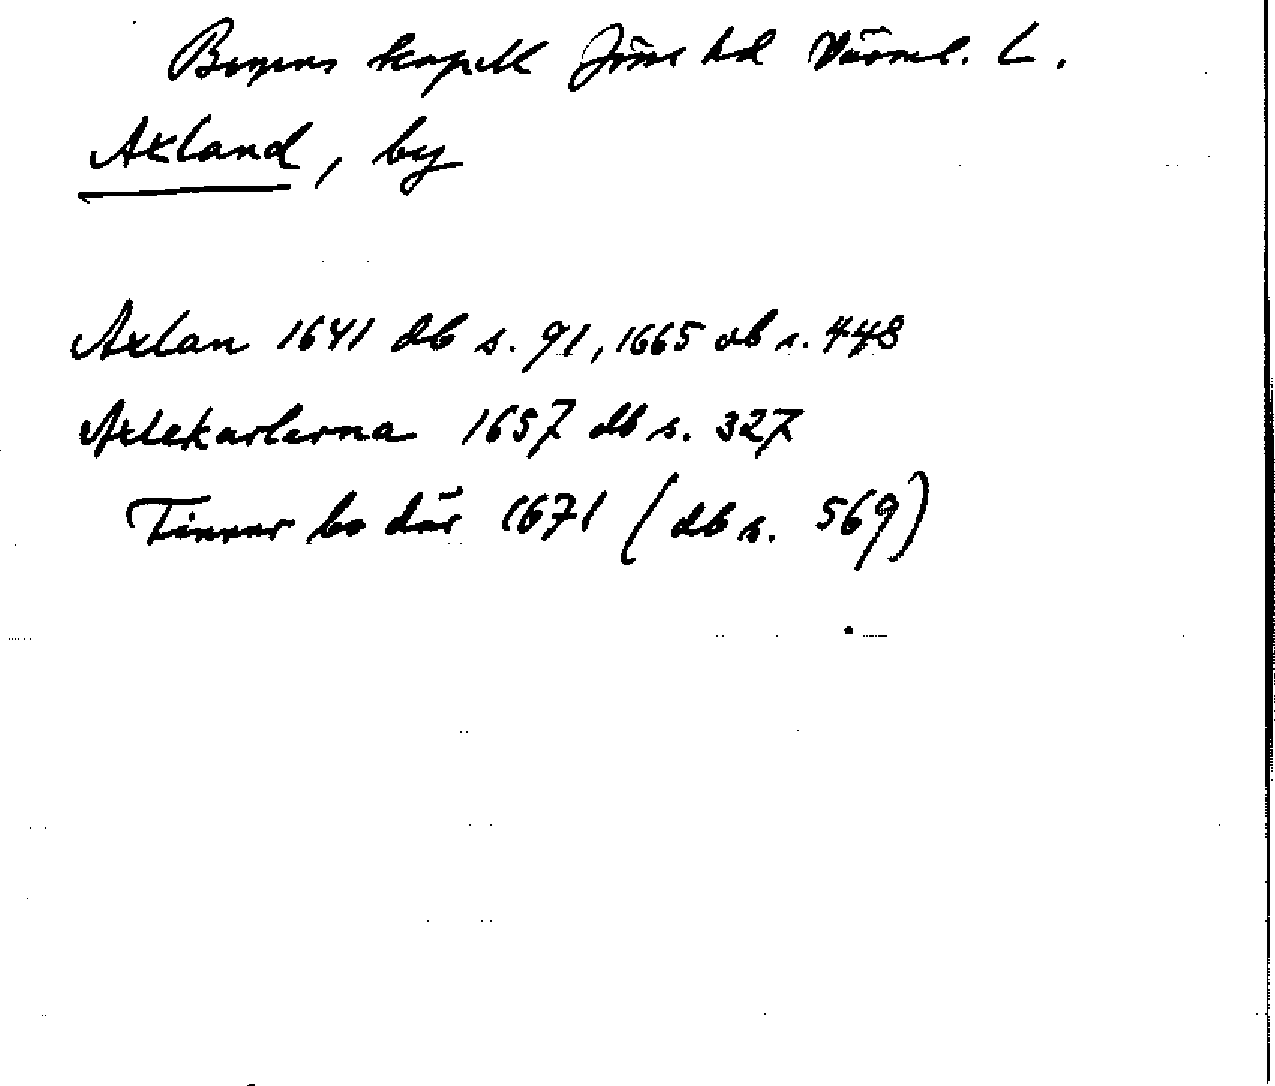 Bogens kapell Jösse hd Värml. L.
Axland, by
Axlan 1641 db s. 91, 1665 db s. 448
Axlekarlerna 1657 db s. 327
Finnar bo där 1671 (db s. 569)